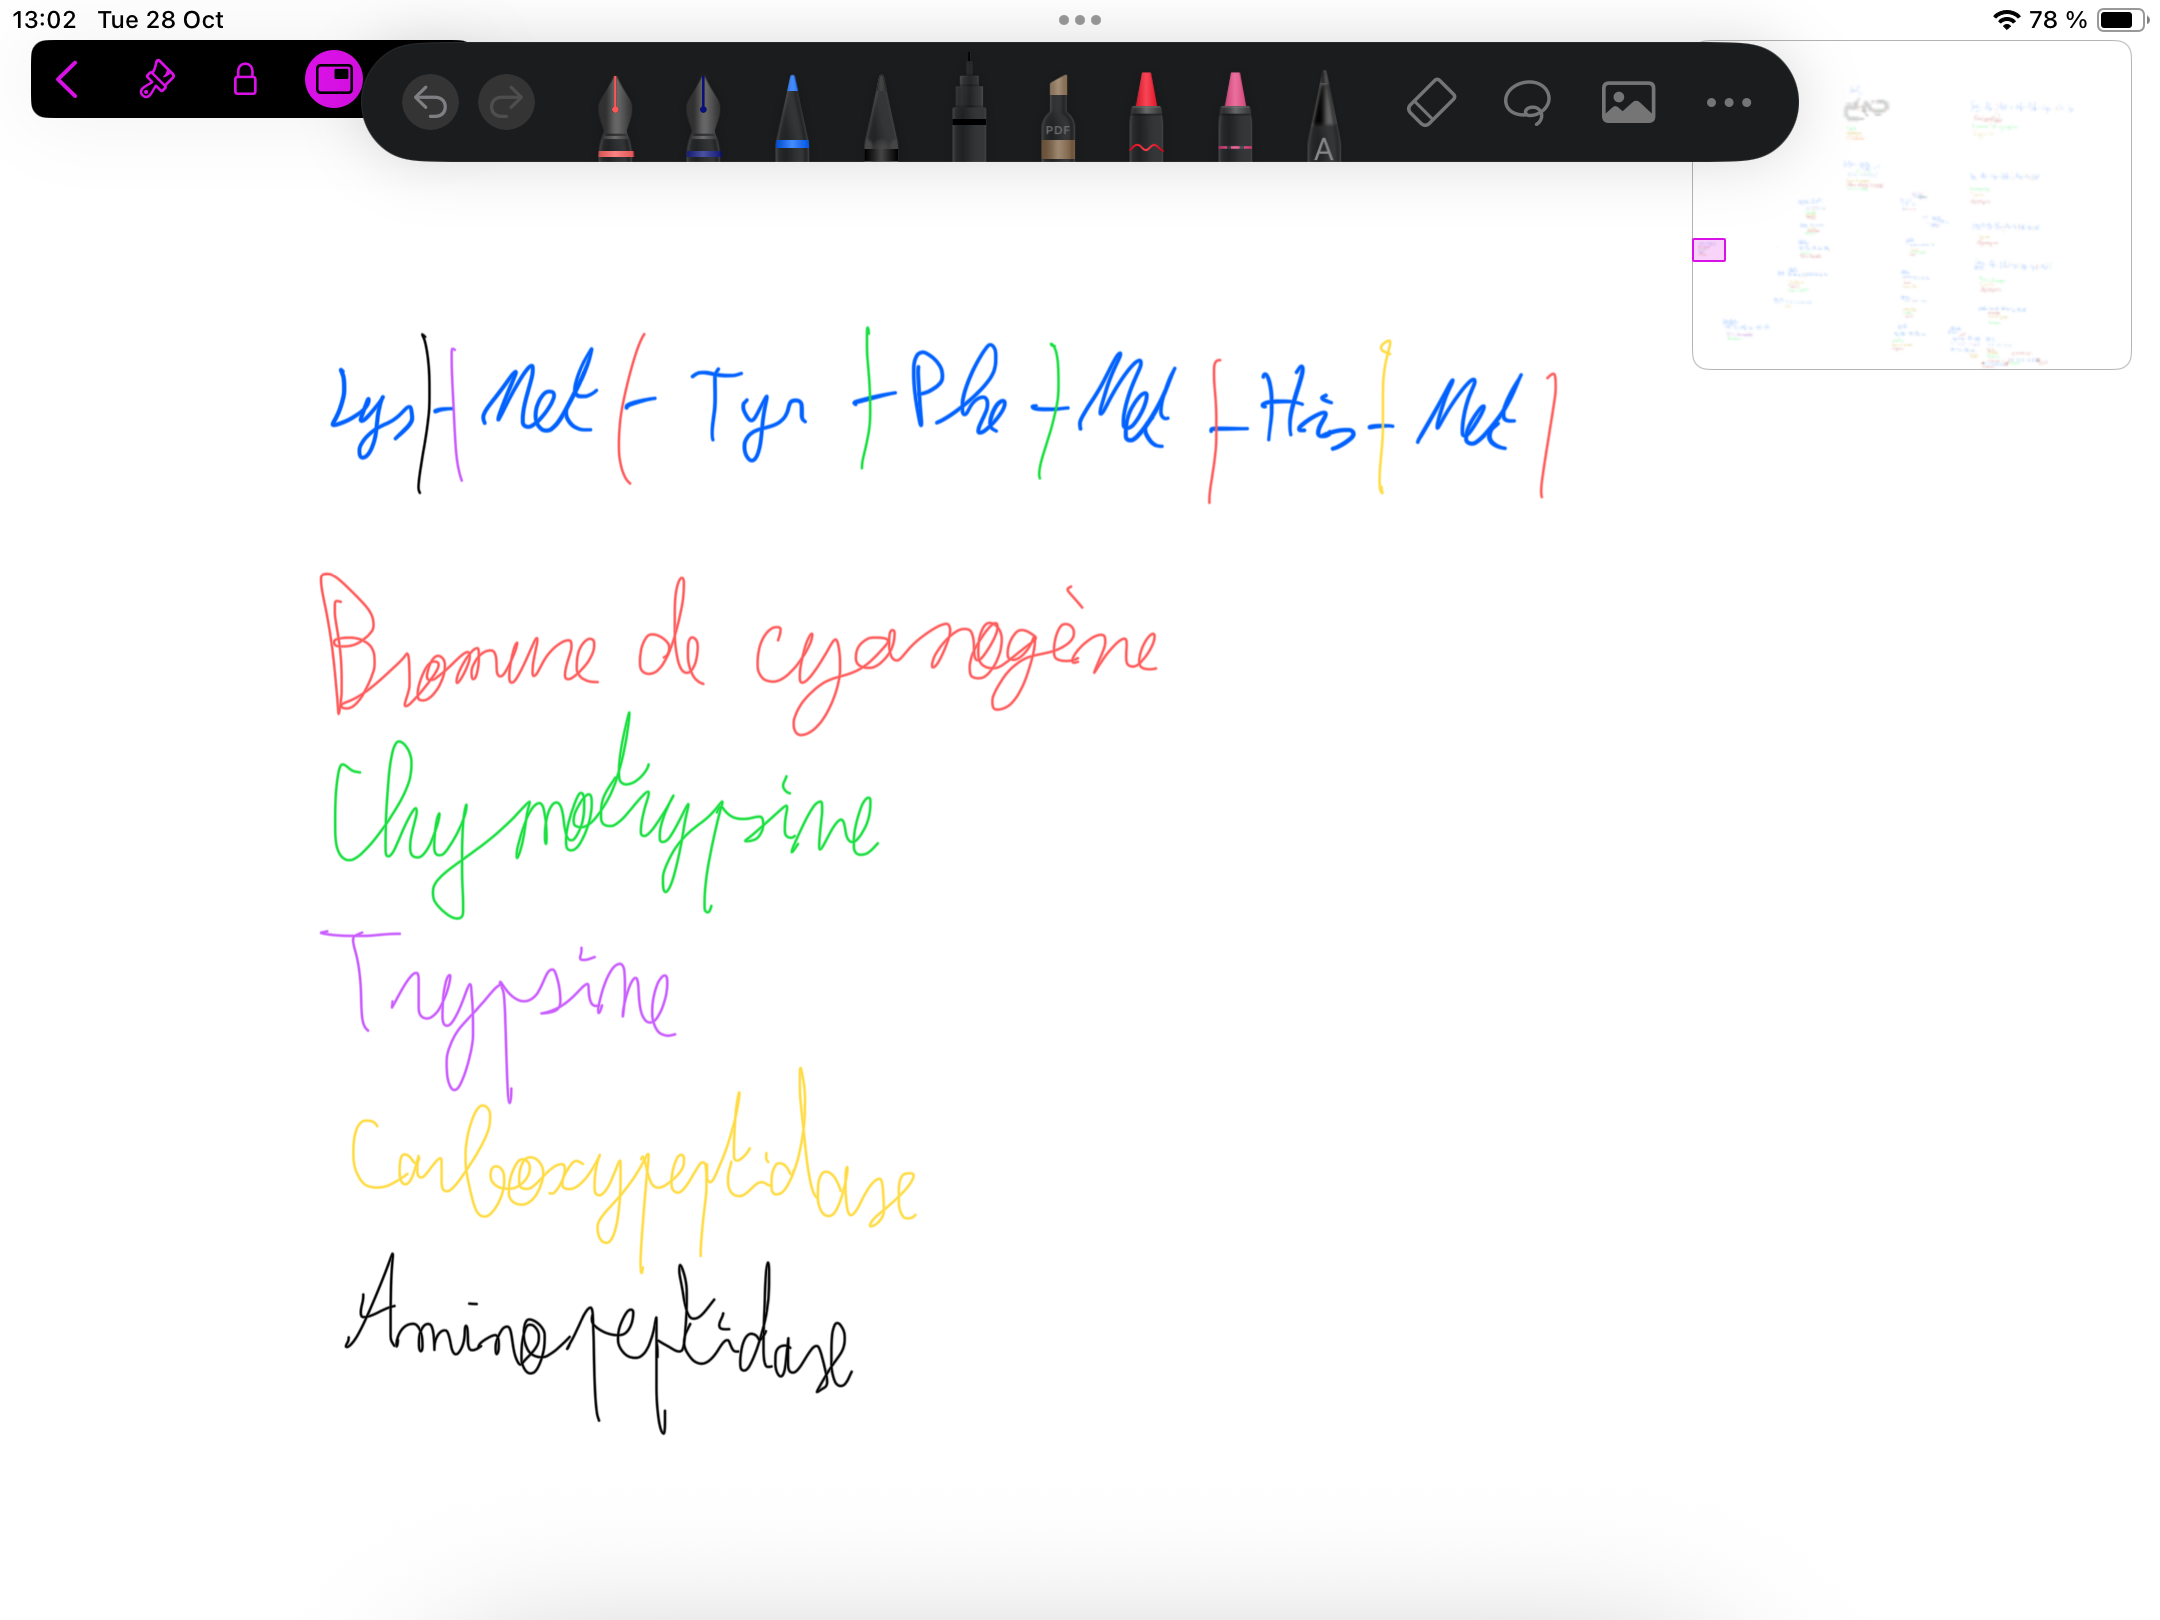 13:02 Tue 28 Oct 78 %
PDF
A
Lys - Met - Tyr - Phe - Met - His - Met
Bromure de cyanogène
Chymotrypsine
Trypsine
Carboxypeptidase
Aminopeptidase